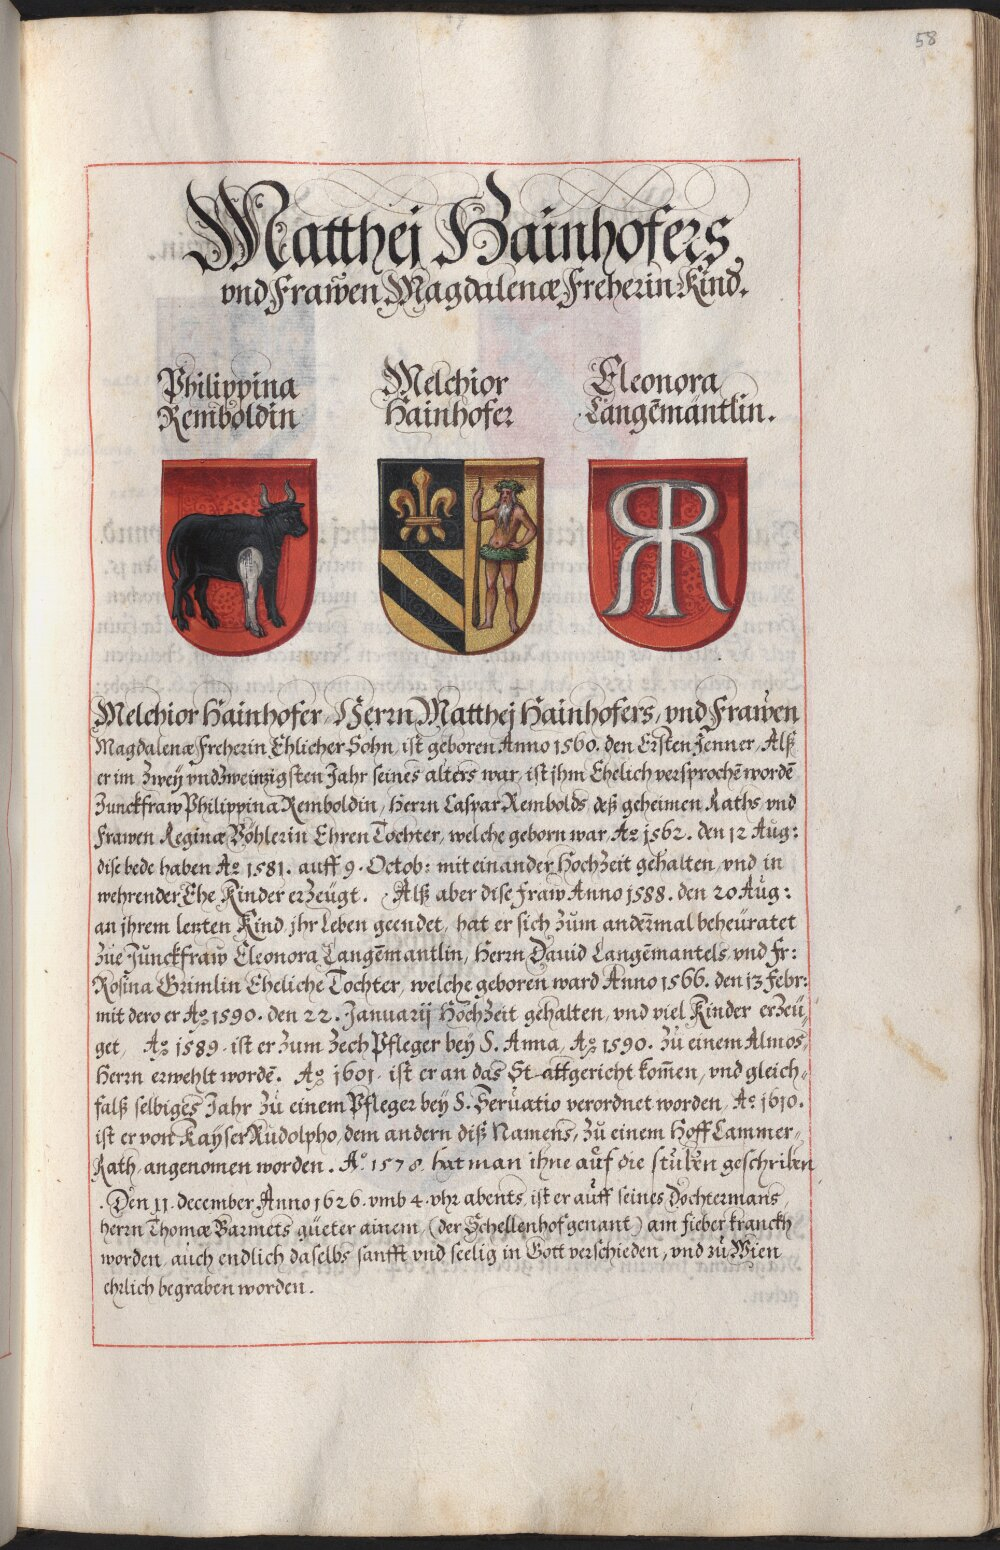 58
Matthej Hainhofers,
vnd Frawen Magdalenæ Freherin Kind.
Philippina
Remboldin
Melchior
Hainhofer
Eleonora
Langēmäntlin.
Melchior Hainhofer, Herrn Matthej Hainhofers, vnd Frawen
Magdalenæ Freherin Ehlicher Sohn, ist geboren Anno 1560. den Ersten Jenner, Alß
er im zwey vnd zweintzigsten Jahr seines alters war, ist jhm Ehelich versprochē wordē
Junckfraw Philippina Remboldin, Herrn Caspar Rembolds, deß geheimen Raths, vnd
Frawen Reginæ Böhlerin Ehren Tochter, welche geborn war Aº 1562. den 12 Aug:
dise bede haben Aº 1581. auff 9. Octob: mit einander Hochzeit gehalten, vnd in
wehrender Ehe Kinder erzeügt. Alß aber dise Fraw Anno 1588. den 20 Aug:
an jhrem letzten Kind jhr Leben geendet, hat er sich zum anderm̄al beheüratet
züe Junckfraw Eleonora Langēmantlin, Herrn Dauid Langēmantels, vnd Fr:
Rosina Grimlin Eheliche Tochter, welche geboren ward Anno 1566. den 13 Febr:
mit dero er Aº 1590. den 22. Januarij Hochzeit gehalten, vnd viel Kinder erzeü,
get, Aº 1589. ist er zum Zech Pfleger bey S. Anna, Aº 1590. zu einem Almos,
Herrn erwehlt wordē. Aº 1601. ist er an das Stattgericht kom̄en, vnd gleich,
falß selbiges Jahr zu einem Pfleger bey S. Seruatio verordnet worden, Aº 1610.
ist er von Kayser Rudolpho, dem andern diß Namens, zu einem Hoff Cammer,
Rath angenomen worden. Aº 1578. hat man ihne auf die stuben geschriben
Den 11. december Anno 1626. vmb 4. vhr abents, ist er auff seines Dochtermans
herrn Thomæ Barmets güeter ainem, (der Schellenhof genant) am fieber kranckh
worden, auch endlich daselbs sanfft vnd seelig in Gott verschieden, vnd zu Wien
ehrlich begraben worden.